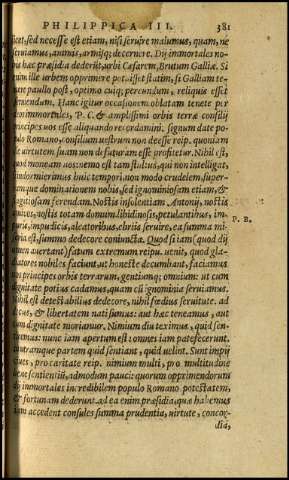 PHILIPPICA III. 381
licet, sed necesse est etiam, nisi seruire malumus, quam, ne
seruiamus, animis, armisq; decernere. Dij immortales no-
bis hæc præsidia dederũt, urbi Cæsarem, Brutum Galliæ. Si
enim ille urbem opprimere potuisset statim, si Galliam te-
nere paullo post, optimo cuiq; pereundum, reliquis esset
seruiendum. Hanc igitur occasionem oblatam tenete per
deos immortales, P. C. & amplißimi orbis terræ consilij
principes uos esse aliquando recordamini. signum date po-
pulo Romano, consilium uestrum non deesse reip. quoniam
ille uirtutem suam non defuturam esse profitetur. Nihil est,
quod moneam uos: nemo est tam stultus, qui non intelligat,
si indormierimus huic tempori, non modo crudelem super-
bamque dominationem nobis, sed ignominiosam etiam, &
flagitiosam ferendam. Nostis insolentiam Antonij, nostis
amicos, nostis totam domum. libidinosis, petulantibus, im-
puris, impudicis, aleatoribus, ebriis seruire, ea summa mi-
seria est, summo dedecore coniuncta. Quod si iam (quod dij
omen auertant) fatum extremum reip. uenit, quod gla-
diatores nobiles faciunt, ut honeste decumbant, faciamus
nos principes orbis terrarum, gentiumq; omnium: ut cum
dignitate potius cadamus, quam cũ ignominia seruiamus.
Nihil est detestabilius dedecore, nihil fœdius seruitute. ad
decus, & libertatem nati sumus: aut hæc teneamus, aut
cum dignitate moriamur. Nimium diu teximus, quid sen-
tiremus: nunc iam apertum est: omnes iam patefecerunt.
P. B.
utramque partem quid sentiant, quid uelint. Sunt impij
ciues, pro caritate reip. nimium multi, pro multitudine
bene sentientiũ, admodum pauci: quorum opprimendorum
dij immortales incredibilem populo Romano potestatem,
& fortunam dederunt. ad ea enim præsidia, quæ habemus
iam accedent consules summa prudentia, uirtute, concor-
dia,